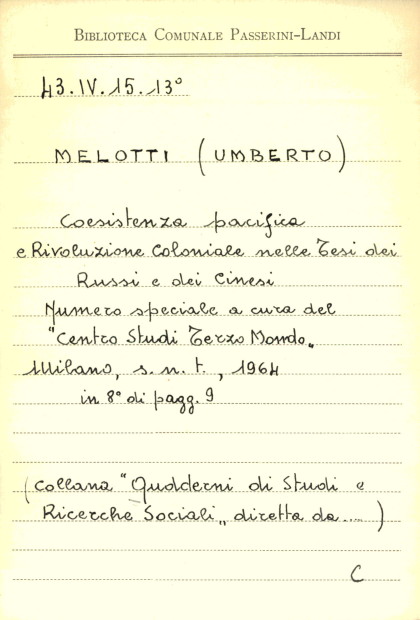 BIBLIOTECA COMUNALE PASSERINI-LANDI
43.IV.15.13°
MELOTTI (UMBERTO)
Coesistenza pacifica
e Rivoluzione Coloniale nelle Tesi dei
Russi e dei Cinesi
Numero speciale a cura del
"Centro Studi Terzo Mondo„
Milano, s. n. t., 1964
in 8° di pagg. 9
(collana "Quadderni di Studi e
Ricerche Sociali„ diretta da....)
C